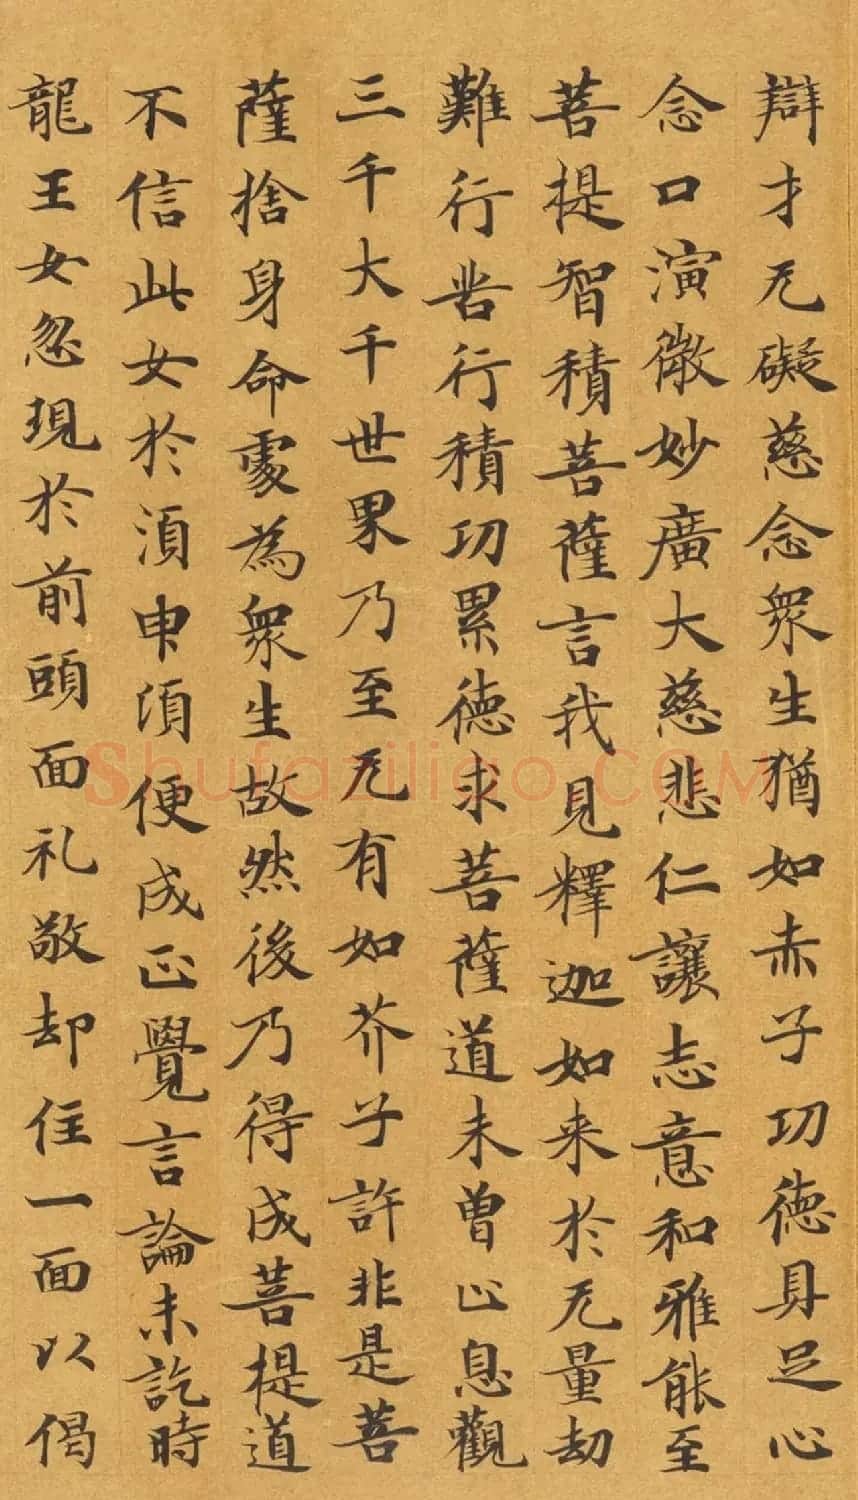 辯才无礙慈念衆生猶如赤子功德具足心
念口演微妙廣大慈悲仁讓志意和雅能至
菩提智積菩薩言我見釋迦如来於无量劫
難行苦行積功累德求菩薩道未曾止息觀
三千大千世界乃至无有如芥子許非是菩
薩捨身命處為衆生故然後乃得成菩提道
不信此女於湏臾頃便成正覺言論未訖時
龍王女忽現於前頭面礼敬却住一面以偈
Shufaziliao.COM